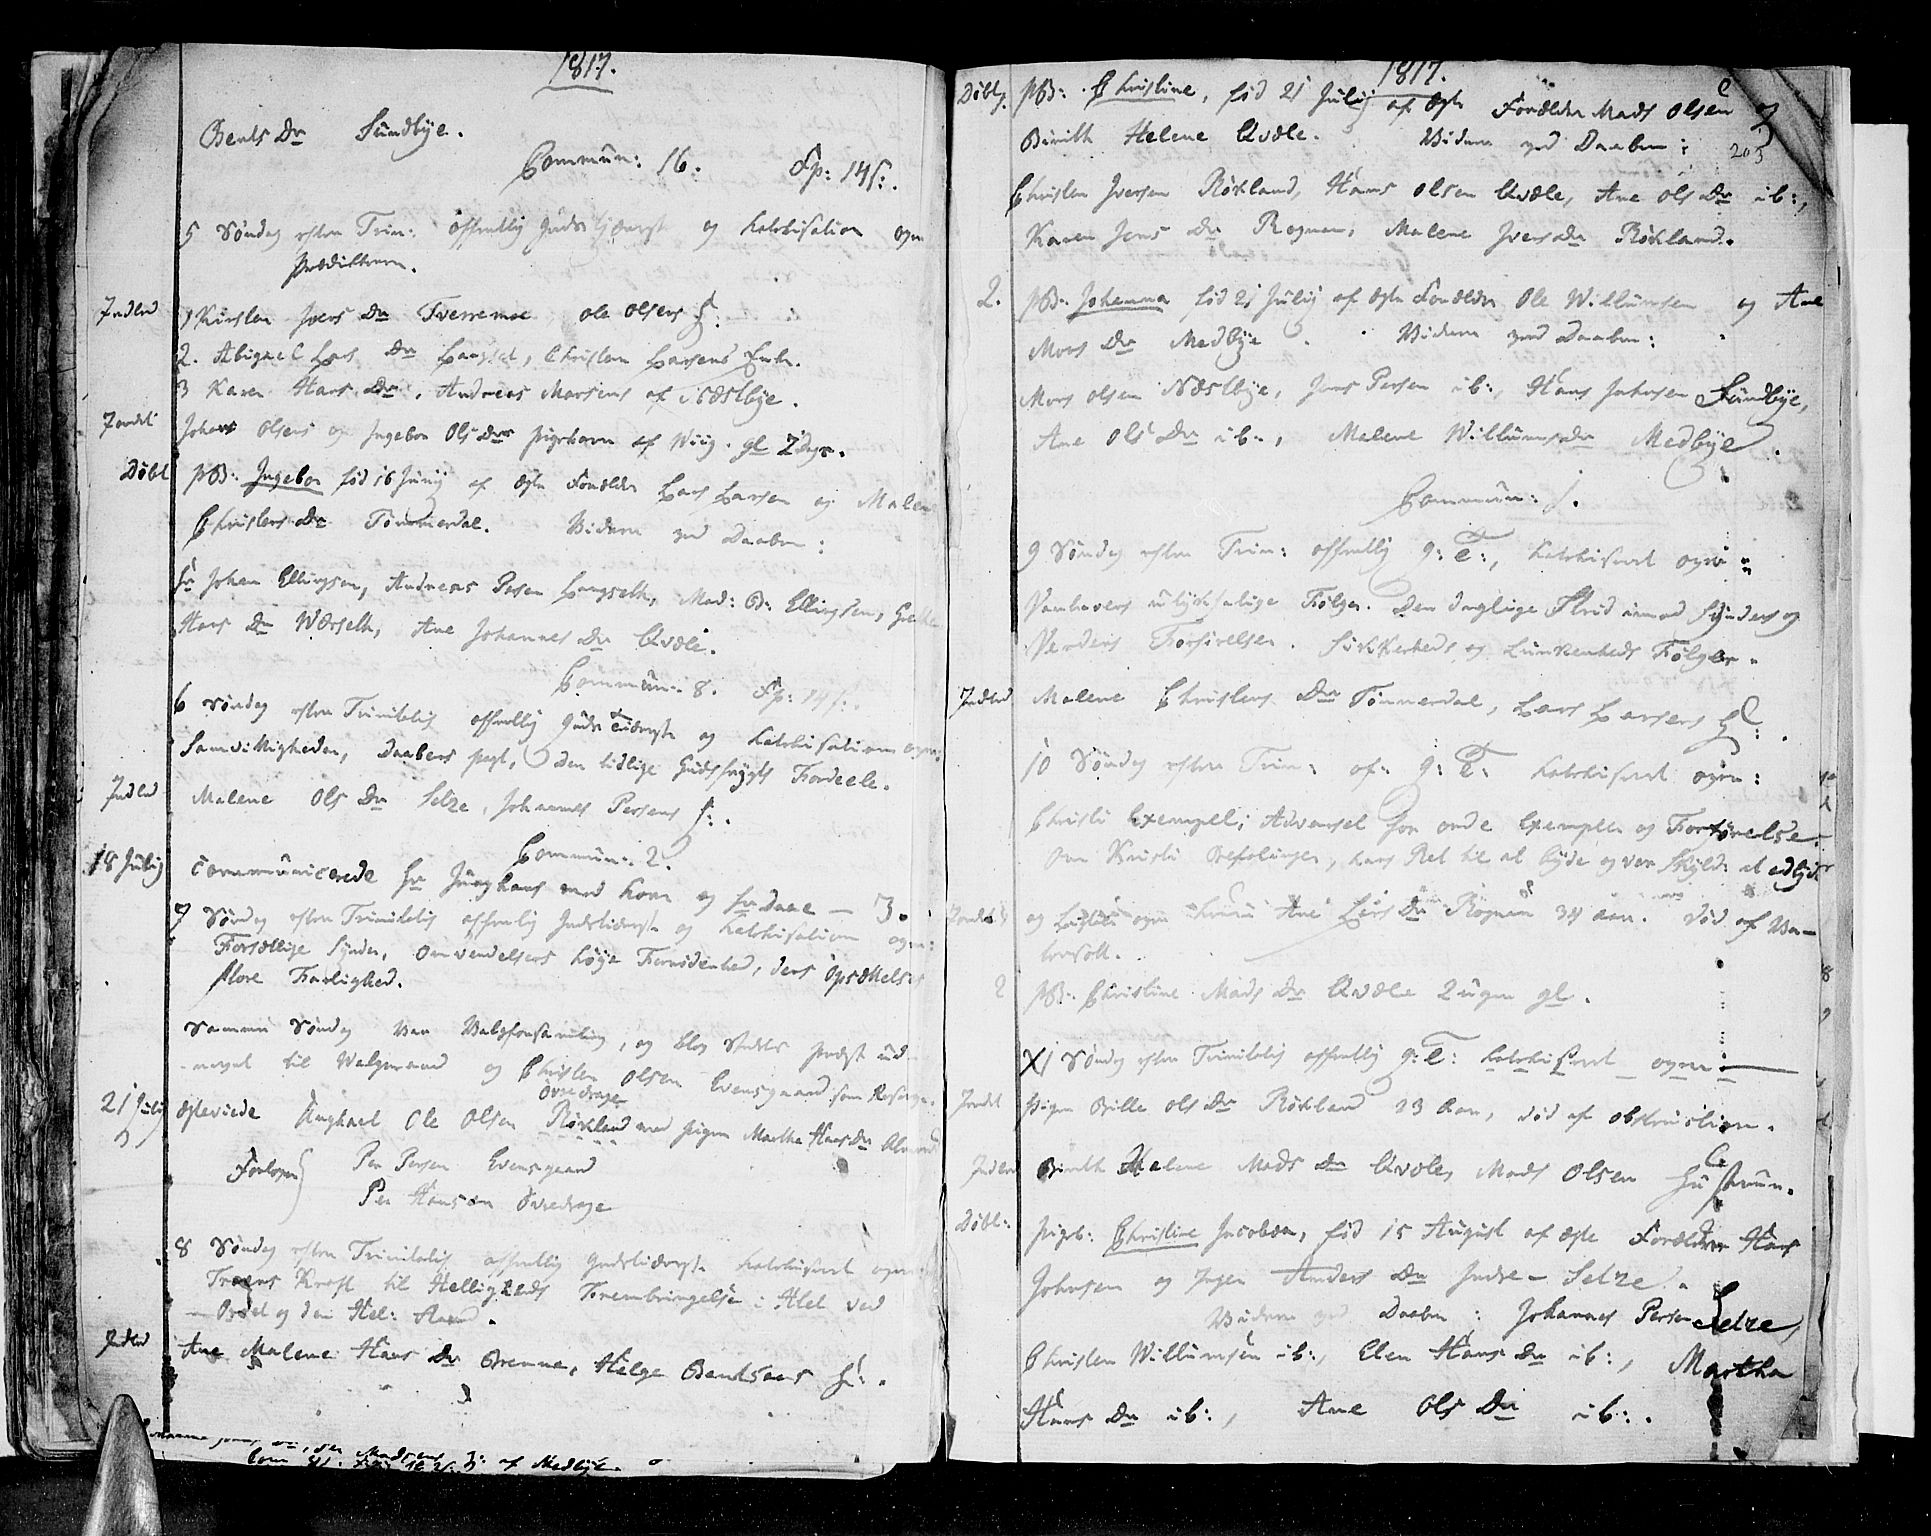 1817.
Bents Dr Sundbye.
Commun: 16. Op: 14 s:.
5 Søndag efter Trin: offentlig Gudstjæneste og Katekisation ogm
Prædikenen.
Indled 1 Kirsten Ivers Dr Tverremoe, Ole Olsens H.
2. Abigael Lars Dr Langset, Christen Larsens Enke.
3 Karen Hans Dr, Andreas Morsens af Næstbye.
Jordet Johan Olsens og Ingebor Ols Drs pigebarn af Wiig. gl 2 Dage.
Døbt PB: Ingebor fød 16 Junij af Egte Forældre Lars Larsen og Malene
Christens Dr Tømmerdal. Viderne ved Daaben:
Hr Johan Ellingsen, Andreas Persen Langseth, Mad: B: Ellingsen,
Hans Dr Wærseth, Ane Johannes Dr Qvæle.
Commun: 8. Op: 14 s:.
6 Søndag efter Trinitatis offentlig Guds Tieneste og Katekisation ogm:
Samvittigheden, Daabens pagt, Den tidlige Gudsfrygts Fordeele.
Indled Malene Ols Dr Setze, Johannes Persens H:.
Commun: 2.
18 Julij communicerede Hr Junghans med Kone og Hr Daae — 3.
7 Søndag efter Trinitatis offentlig Gudstieneste og Katekisation ogm:
Forsætlige Synder, Omvendelsens høye Fornødenhed, dens Opsættelses
store Farlighed.
Samme Søndag var Valgforsamling, og blev Stedets Præst ud-
nævnt til Valgmand og Christen Olsen Evensgaard som
21 Julij Egteviede Ungkarl Ole Olsen Røkland med pigen Martha Hans Dr
Øvredrage
Forlover Per Persen Evensgaard
Per Hansen Øvredrage
8 Søndag efter Trinitatis offentlig Gudstieneste Katekiseret ogm:
Troens Kraft til Helligheds Frembringelse i Alet ved
Ordet og den Hel: Aand.
Indled Ane Malene Hans Dr Brenne, Helge Bentsens H:.
Madsens H: af Medbye.
1817.
205
Døbt 1. PB: Christine, fød 21 Julij af Egte Forældre Mads Olsen og
Birith Helene Qvæle. Viderne ved Daaben:
Christen Iversen Røkland, Hans Olsen Qvæle, Ane Ols Dr ib:,
Karen Jens Dr Rognan, Malene Ivers Dr Røkland.
2. PB: Johanna fød 21 Julij af Egte Forældre Ole Willumsen og Ane
Mors Dr Medbye. Viderne ved Daaben:
Mors Olsen Næstbye, Jens Persen ib:, Hans Johnsen Sundbye,
Ane Ols Dr ib:, Malene Willums Dr Medbye.
Commun: 1.
9 Søndag efter Trin: offentlig G: T:, Katekiseret ogm:
Vankavers ulyksalige Følger. Den daglige Strid imod Synders og
Verdens Forførelser. Sikkerheds og Lunkenheds Følger.
Indled Malene Christens Dr Tømmerdal, Lars Larsens H:.
10 Søndag efter Trin: of: G: T: Katekiseret ogm:
Christi Exempel; Advarsel for onde Exempler og Forførelse
om Kristi Befalinger, hans Ret til at byde og vor Skyld: at adlyde
Jordet og Kone Ane Lars Dr Rognan 34 Aar. død af Va-
tersott.
2 PB: Christine Mads Dr Qvæle 2 uger gl.
XI Søndag efter Trinitatis offentlig G: T: Katekiseret ogm:
Jordet Pigen Bille Ols Dr Røkland 23 Aar, død af Obstruction.
Indled Birith Helene Mads Dr Qvæle, Mads Olsens Hustrue.
Døbt: Pigeb: Christine Jacobea, fød 15 August af Egte Forældre Hans
Johnsen og Inger Anders Dr Indre-Setze.
Viderne ved Daaben: Johannes Persen Setze,
Christen Willumsen ib:, Elen Hans Dr ib:, Martha
Hans Dr ib:, Ane Ols Dr ib:.